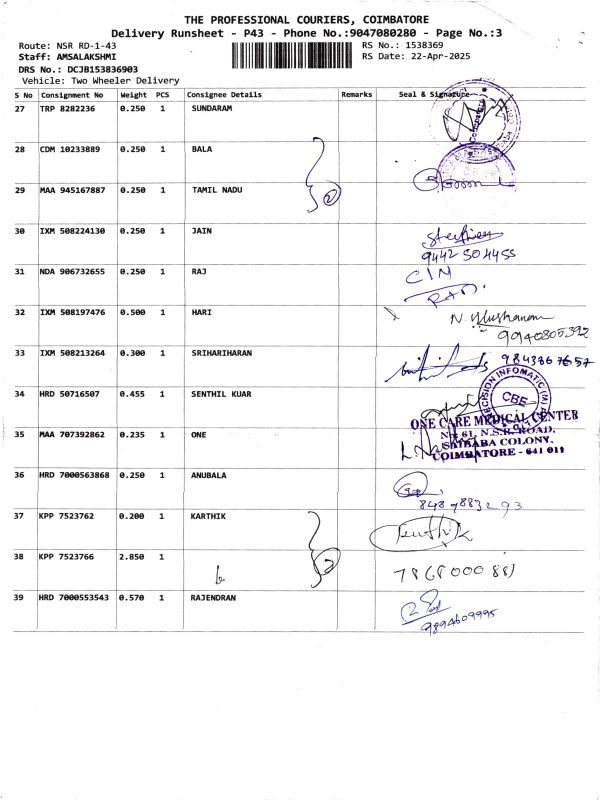 THE PROFESSIONAL COURIERS, COIMBATORE
Delivery Runsheet - P43 - Phone No.:9047080280 - Page No.:3
Route: NSR RD-1-43 RS No.: 1538369
Staff: AMSALAKSHMI RS Date: 22-Apr-2025
DRS No.: DCJB153836903
Vehicle: Two Wheeler Delivery
S No Consignment No Weight PCS Consignee Details Remarks Seal & Signature
27 TRP 8282236 0.250 1 SUNDARAM
28 CDM 10233889 0.250 1 BALA
29 MAA 945167887 0.250 1 TAMIL NADU 2
30 IXM 508224130 0.250 1 JAIN
9442504455
31 NDA 906732655 0.250 1 RAJ CIN
32 IXM 508197476 0.500 1 HARI
9940805392
33 IXM 508213264 0.300 1 SRIHARIHARAN 9843867657
34 HRD 50716507 0.455 1 SENTHIL KUAR CBE
ONE CARE MEDICAL CENTER
35 MAA 707392862 0.235 1 ONE No 61, N.S.R. ROAD,
SAIBABA COLONY,
COIMBATORE - 641 011
36 HRD 7000563868 0.250 1 ANUBALA
8489883293
37 KPP 7523762 0.200 1 KARTHIK
38 KPP 7523766 2.850 1 2
39 HRD 7000553543 0.570 1 RAJENDRAN
9894609995